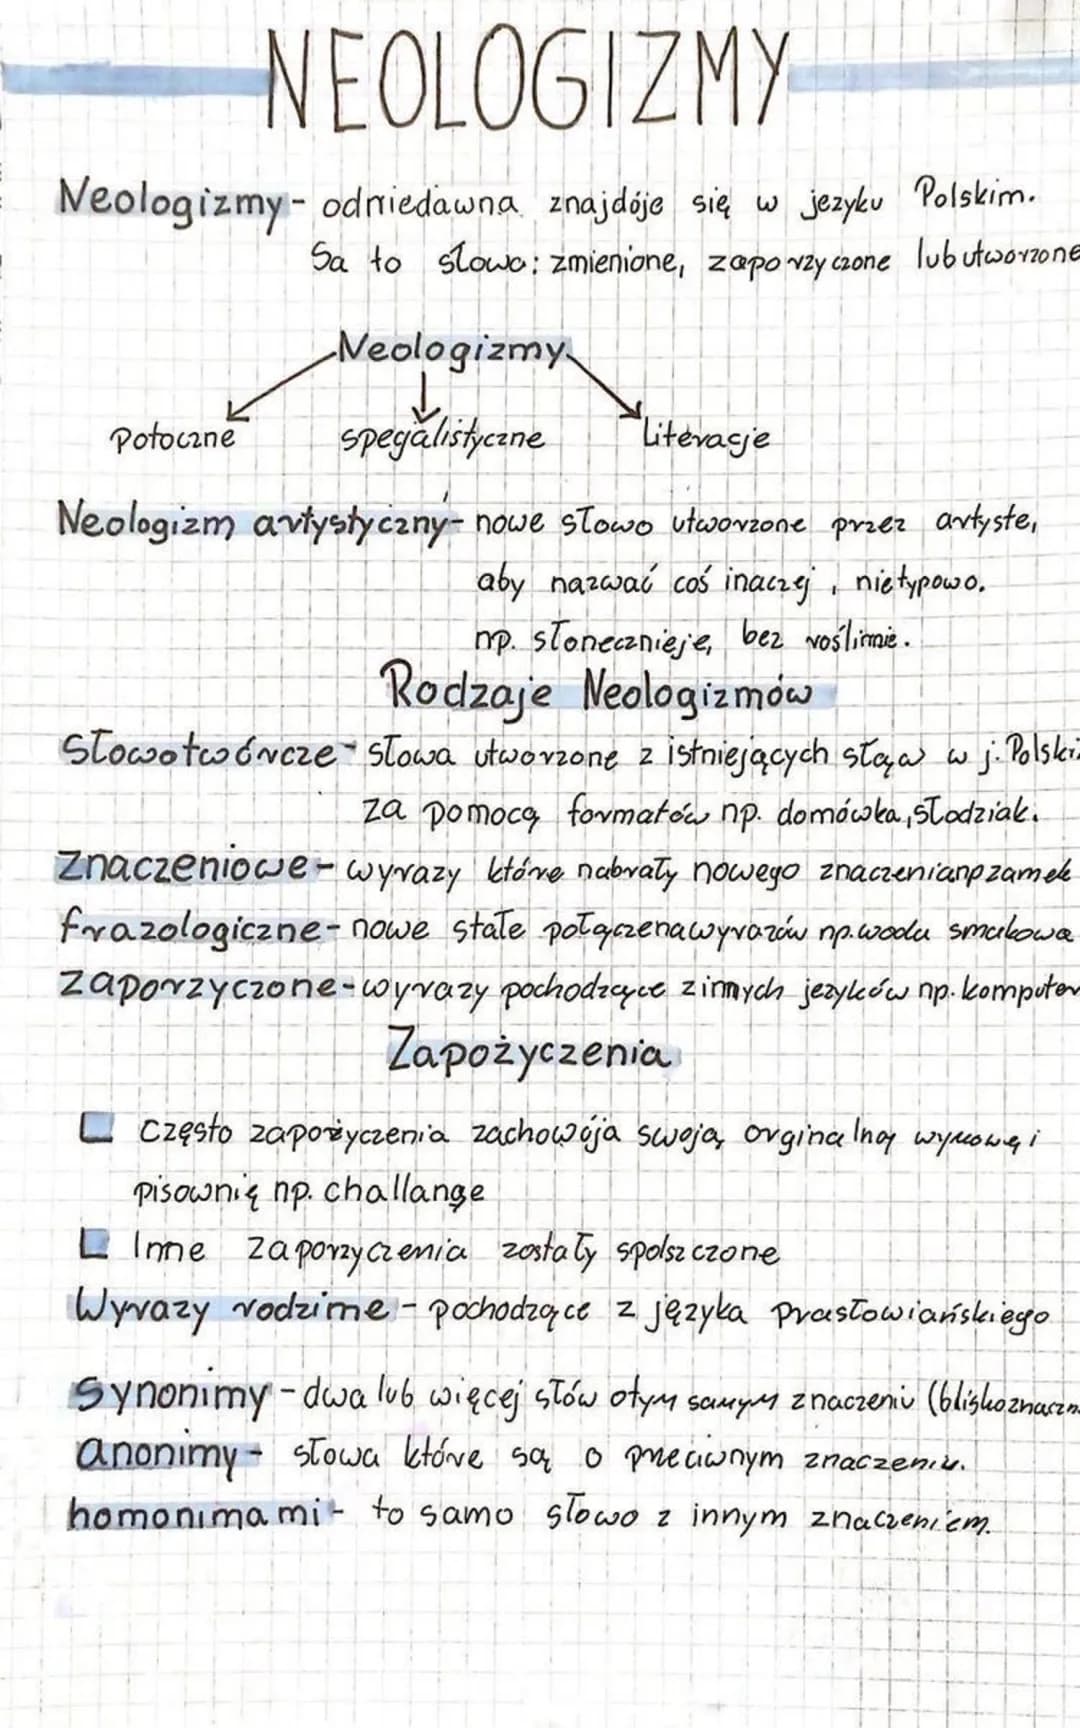 NEOLOGIZMY
Neologizmy - odniedawna znajdóje się w jezyku Polskim.
Sa to słowa: zmienione, zaporzyczone lub utworzone
Neologizmy
Potoczne specjalistyczne Literacje
Neologizm artystyczny - nowe słowo utworzone przez artyste,
aby nazwać coś inaczej, nietypowo.
np. słonecznieje, bez roślinnie.
Rodzaje Neologizmów
Słowotwórcze - słowa utworzone z istniejących słów w j. Polski
za pomocą formatów np. domówka, słodziak.
Znaczeniowe - wyrazy które nabrały nowego znaczenia np zamek
frazologiczne - nowe stałe połączena wyrazów np. woda smakowa
Zaporzyczone - wyrazy pochodzące z innych jezyków np. komputer
Zapożyczenia
Często zapożyczenia zachowója swoją orginalną wymowę i
pisownię np. challange
Inne zaporzyczenia zostały spolszczone
Wyrazy rodzime - pochodzące z języka Prasłowiańskiego
Synonimy - dwa lub więcej słów otym samym znaczeniu (bliskoznaczn
anonimy - słowa które są o przeciwnym znaczeniu.
homonimami - to samo słowo z innym znaczeniem.